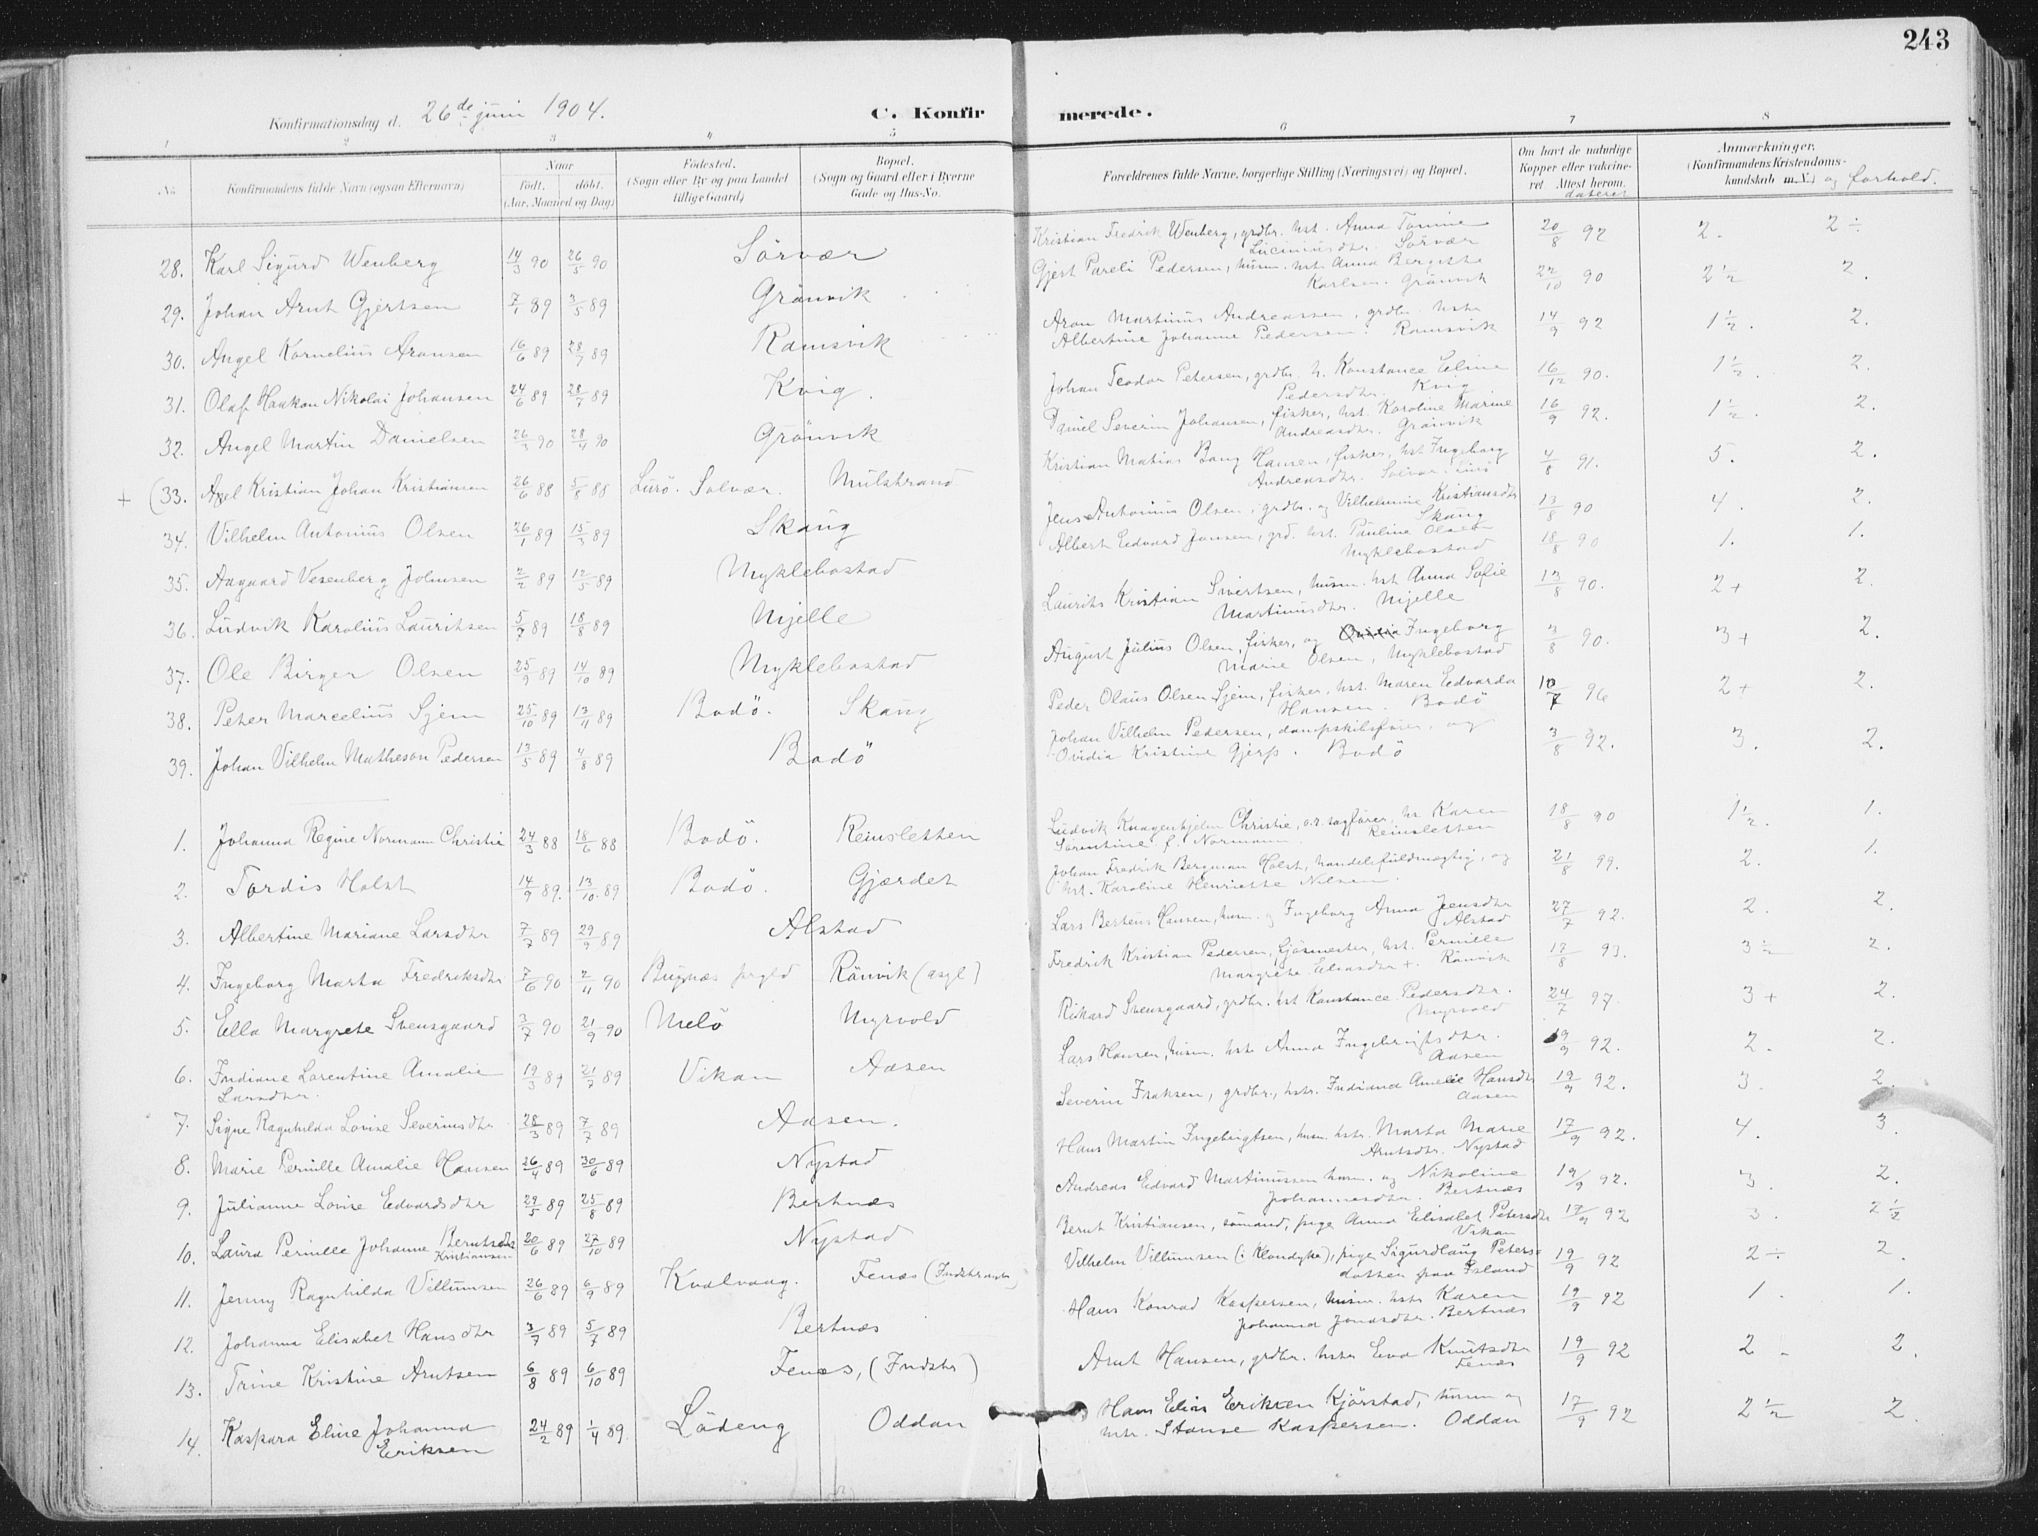 243
Konfirmationsdag d. 26de juni 1904.
C. Konfirmerede.
1 2 3 4 5 6 7 8
No.
Konfirmandens fulde Navn (ogsaa Efternavn)
Naar
født. døbt.
(Aar, Maaned og Dag)
Fødested.
(Sogn eller By og paa Landet
tillige Gaard)
Bopæl.
(Sogn og Gaard eller i Byerne
Gade og Hus-No.
Forældrenes fulde Navne, borgerlige Stilling (Næringsvei) og Bopæl.
Om havt de naturlige
Kopper eller vakcine-
ret Attest herom.
dateret
Anmærkninger.
(Konfirmandens Kristendoms-
kundskab m. V.) og forhold.
28. Karl Sigurd Wenberg 14/3 90 26/5 90 Sörvær Kristian Fredrik Wenberg, grdbr. hst. Anna Tomine 20/8 92 2. 2 ÷
Luciniusdtr. Sörvær
29. Johan Arnt Gjertsen 7/1 89 3/5 89 Grönvik Gjert Pareli Pedersen, husm. hst. Anna Bergitte 22/10 90 2 1/2 2.
Karlsen. Grönvik
30. Angel Kornelius Aronsen 16/6 89 28/7 89 Ramsvik Aron Martinus Andreassen, grdbr. hstr. 14/9 92 1 1/2. 2.
Albertine Johanne Pedersen. Ramsvik
31. Olaf Haakon Nikolai Johansen 24/6 89 28/7 89 Kvig. Johan Teodor Petersen, grdbr. h. Konstance Eline 16/12 90. 1 1/2. 2.
Pedersdtr. Kvig
32. Angel Martin Danielsen 26/3 90 28/4 90 Grönvik Daniel Severin Johansen, fisker, hst. Karoline Marine 16/9 92. 1 1/2. 2.
Andreasdtr. Grönvik
+ (33. Axel Kristian Johan Kristiansen 26/6 88 5/8 88 Lurö. Solvær. Mulstrand Kristian Matias Bang Hansen, fisker, hst. Ingeborg 4/8 91. 5. 2.
Andreasdtr. Solvær. Lurö
34. Vilhelm Antonius Olsen 26/1 89 15/3 89 Skaug Jens Antonius Olsen, grdbr. og Vilhelmine Kristiansdtr 13/8 90 4. 2.
Skaug
35. Aagaard Vesenberg Johnsen 2/2 89 12/5 89 Myklebostad Albert Edvard Jonsen, grd. hst. Pauline Olsen 18/8 90 1. 1.
Myklebostad
36. Ludvik Karolius Lauritsen 5/7 89 18/8 89 Mjelle Laurits Kristian Sivertsen, husm. hst. Anna Sofie 13/8 90. 2+ 2.
Martinusdtr. Mjelle
37. Ole Birger Olsen 25/9 89 14/10 89 Myklebostad August Julius Olsen, fisker, og Ingeborg 3/8 90. 3+ 2.
Marie Olsen, Myklebostad
38. Peter Marcelius Sjem 25/10 89 13/11 89 Bodö. Skaug Peder Olaus Olsen Sjem, fisker, hst. Maren Edvarda 10/7 96 2+ 2.
Hansen. Bodö
39. Johan Vilhelm Matheson Pedersen 13/5 89 4/8 89 Bodö Johan Vilhelm Pedersen, dampskibsfører, og 3/8 92. 3. 2.
Ovidia Kristine Gjerp. Bodö
1. Johanna Regine Normann Christie 24/3 88 18/6 88 Bodö. Reinsletten Ludvik Knagenhjelm Christie, o.r. sagfører, h. Karen 18/8 90 1 1/2. 1.
Sørentine f. Normann. Reinsletten
2. Tordis Holst 14/9 89. 13/10 89 Bodö. Gjærdet Johan Fredrik Bergman Holst, handelsfuldmægtig, og 21/8 99. 2. 1.
hst. Karoline Henriette Nilsen.
3. Albertine Mariane Larsdtr 7/7 89 29/9 89 Alstad Lars Berteus Hansen, husm. og Ingeborg Anna Jensdtr 27/7 92. 2. 2.
Alstad
4. Ingeborg Marta Fredriksdtr 7/6 90 2/11 90 Bugnæs prgld Rönvik (asyl) Fredrik Kristian Pedersen, fjösmester, hst. Pernille 17/8 93. 3 ÷ 2.
Margrete Eliasdtr +. Rönvik
5. Ella Margrete Svensgaard 3/7 90 21/9 90 Melö Myrvold Rikhard Svensgaard, grdbr. hst Konstance Pedersdtr. 24/7 97. 3+ 2.
Myrvold
6. Indiane Lorentine Amalie 19/3 89 21/7 89 Vikan Aasen Lars Hansen, husm. hst. Anna Ingebrigtsdtr. 19/9 92. 2. 2.
Larsdtr. Aasen
7. Signe Ragnhilda Lovise Severinsdtr 28/3 89 7/7 89 Aasen. Severin Isaksen, grdbr., hstr. Indiana Amelie Hansdtr 19/9 92. 3. 2.
Aasen
8. Marie Pernille Amalie Hansen 26/4 89 30/6 89 Nystad Hans Martin Ingebrigtsen, husm. hstr. Marta Marie 17/9 92. 4. 3.
Arntsdtr. Nystad
9. Julianne Lovise Edvardsdtr 29/5 89 25/8 89 Bertnæs Andreas Edvard Martinussen husm. og Nikoline 19/9 92. 3. 2.
Johannesdtr. Bertnæs
10. Laura Pernille Johanne Berntsdtr 20/6 89 27/10 89 Nystad Bernt Kristiansen, sömand, pige Anna Elisabet Petersdtr 17/9 92 3. 2 1/2
Kristiansen Vikan
11. Jenny Ragnhilda Villumsen 26/6 89 6/9 89 Kvalvaag. Fenæs (Indstranden) Vilhelm Villumsen (i Klondyke), pige Sigurdlaug Peters- 19/9 92 2 ÷ 2.
datter fra Island
12. Johanna Elisabet Hansdtr 3/7 89 5/7 89 Bertnæs Hans Konrad Kaspersen, husm. hstr. Karen 19/9 92 1. 1.
Johanna Jonasdtr. Bertnæs
13. Trine Kristine Arntsen 6/8 89 6/10 89 Fenæs, (Indstr) Arnt Hansen, grdbr. hstr. Eva Knutsdtr 19/9 92 2. 2.
Fenæs
14. Kaspara Eline Johanna 24/2 89 1/4 89. Lödeng Oddan Hans Elias Eriksen Kjörstad, husm og 17/9 92 2 1/2 2.
Eriksen hstr. Stanse Kaspersen. Oddan